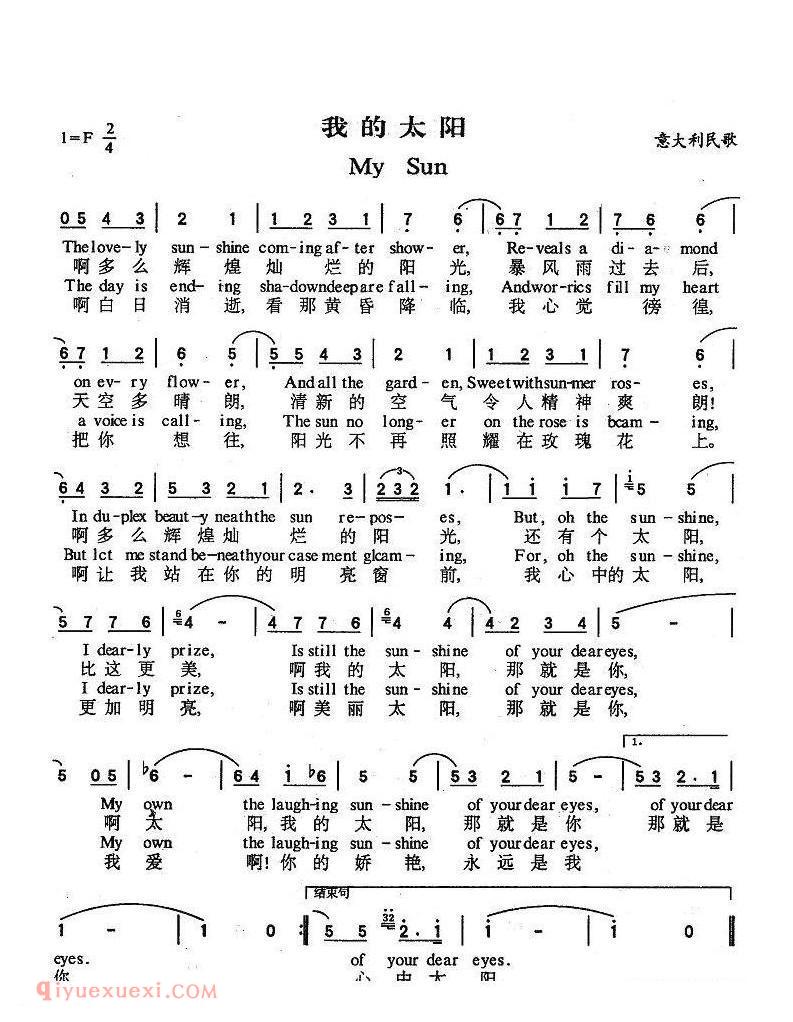 我的太阳
1=F 2/4
意大利民歌
My Sun
05 4 3 | 2 1 | 1 2 3 1 | 7 6 | 67 1 2 | 7 6 | 6
The love-ly sun-shine com-ing af-ter show-er, Re-veals a di-a-mond
啊多么辉煌灿烂的阳光,暴风雨过去后,
The day is end-ing sha-down deep are fall-ing, And wor-rics fill my heart
啊白日消逝,看那黄昏降临,我心觉徬徨,
67 1 2 | 6 5 | 55 4 3 | 2 1 | 1 2 3 1 | 7 6
on ev-ry flow-er, And all the gard-en, Sweet with sun-mer ros-es,
天空多晴朗,清新的空气令人精神爽朗!
a voice is call-ing, The sun no long-er on the rose is bcam-ing,
把你想往,阳光不再照耀在玫瑰花上。
64 3 2 | 5 3 2 1 | 2· 3 | 232 1· | 1 1 1 7 | 5 5
In du-plex beaut-y neath the sun re-pos-es, But, oh the sun-shine,
啊多么辉煌灿烂的阳光,还有个太阳,
But lct me stand be-neath your case ment glcam-ing, For, oh the sun-shine,
啊让我站在你的明亮窗前,我心中的太阳,
5 7 7 6 | 4 - | 4 7 7 6 | 4 4 | 4 2 3 4 | 5 -
I dear-ly prize, Is still the sun-shine of your dear eyes,
比这更美,啊我的太阳,那就是你,
I dear-ly prize, Is still the sun-shine of your dear eyes,
更加明亮,啊美丽太阳,那就是你,
1.
5 05 | ♭6 - | 64 i ♭6 | 5 5 | 53 2 1 | 5 - | 53 2·1
My own the laugh-ing sun-shine of your dear eyes, of your dear
啊太阳,我的太阳,那就是你那就是
My own the laugh-ing sun-shine of your dear eyes,
我爱啊!你的娇艳,永远是我
结束句
1 - | 1 0 :| 5 5 2·1 | 1 - | 1 0
eyes. of your dear eyes.
你 心中太阳
qiyuexuexi.com